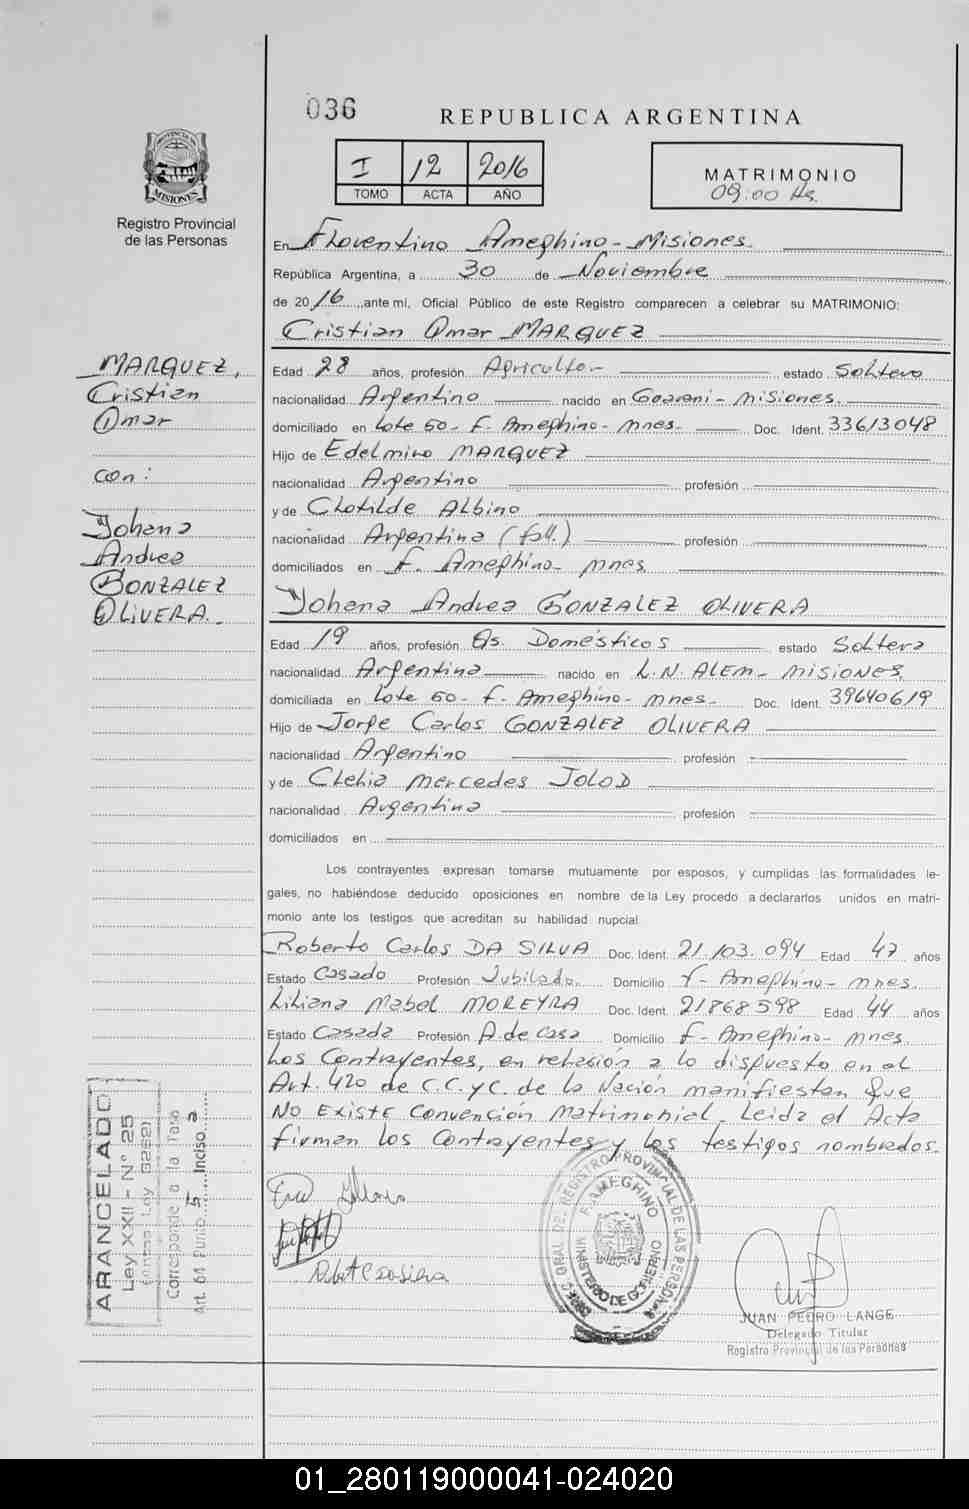 036
REPUBLICA ARGENTINA
PROVINCIA DE
MISIONES
Registro Provincial
de las Personas
I 12 2016
TOMO ACTA AÑO
MATRIMONIO
09:00 Hs.
En Florentino Ameghino - Misiones
República Argentina, a 30 de Noviembre
de 2016, ante mí, Oficial Público de este Registro comparecen a celebrar su MATRIMONIO:
Cristian Omar MARQUEZ
MARQUEZ,
Cristian
Omar
con:
Johana
Andrea
GONZALEZ
OLIVERA.
Edad 28 años, profesión Agricultor estado Soltero
nacionalidad Argentino nacido en Guarani - Misiones.
domiciliado en Lote 60 - F. Ameghino - Mnes. Doc. Ident. 33613048
Hijo de Edelmiro MARQUEZ
nacionalidad Argentino profesión
y de Clotilde Albino
nacionalidad Argentina (fall.) profesión
domiciliados en F. Ameghino - Mnes
Johana Andrea GONZALEZ OLIVERA
Edad 19 años, profesión Qs. Domésticos estado Soltera
nacionalidad Argentina nacido en L.N. ALEM - Misiones.
domiciliada en Lote 60 - F. Ameghino - Mnes. Doc. Ident. 39640619
Hijo de Jorge Carlos GONZALEZ OLIVERA
nacionalidad Argentino profesión
y de Clelia Mercedes JOLOD
nacionalidad Argentina profesión
domiciliados en
Los contrayentes expresan tomarse mutuamente por esposos, y cumplidas las formalidades le-
gales, no habiéndose deducido oposiciones en nombre de la Ley procedo a declararlos unidos en matri-
monio ante los testigos que acreditan su habilidad nupcial.
Roberto Carlos DA SILVA Doc. Ident. 21.103.094 Edad 47 años
Estado Casado Profesión Jubilado. Domicilio F - Ameghino - Mnes.
Liliana Mabel MOREYRA Doc. Ident. 21868598 Edad 44 años
Estado Casada Profesión A. de Casa Domicilio F - Ameghino - Mnes.
Los Contrayentes, en relación a lo dispuesto en el
Art. 420 de C.C. y C. de la Nación manifiestan que
NO EXISTE Convención Matrimonial. Leida el Acta
firman los Contrayentes y los testigos nombrados.
ARANCELADO
Ley XXII - N° 25
(Antes Ley 3252)
Corresponde a la Tasa
Art. 61 Punto 5 Inciso a
DIREC. GRAL. DEL REGISTRO PROVINCIAL DE LAS PERSONAS
F. AMEGHINO
MINISTERIO DE GOBIERNO
JUAN PEDRO LANGE
Delegado Titular
Registro Provincial de las Personas
01_280119000041-024020